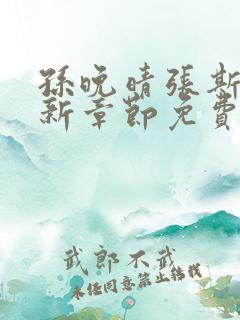 孫晚晴張斯
新章節免費
武郎不武
未经同意禁止转载